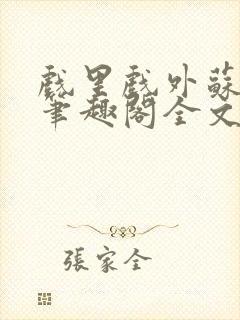 戲里戲外蘇
筆趣閣全文
張家全